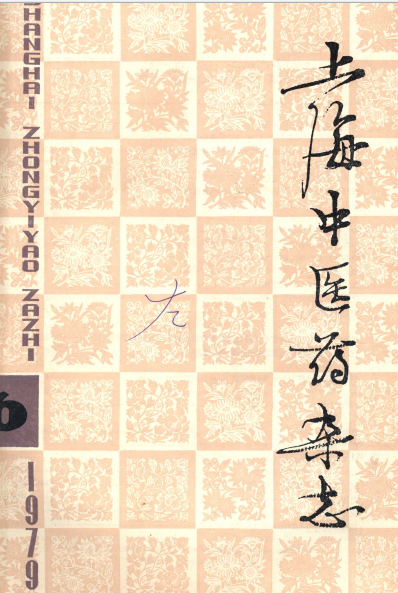 上海中医药杂志
SHANGHAI ZHONGYIYAO ZAZHI
6
1979